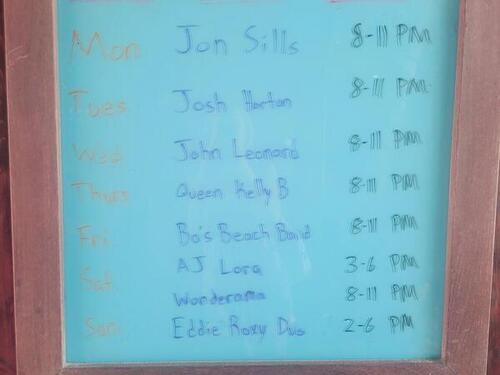 Mon Jon Sills 8-11 PM
Tues Josh Horton 8-11 PM
Wed John Leonard 8-11 PM
Thurs Queen Kelly B 8-11 PM
Fri Bo's Beach Band 8-11 PM
Sat AJ Lora 3-6 PM
Wonderama 8-11 PM
Sun Eddie Roxy Duo 2-6 PM